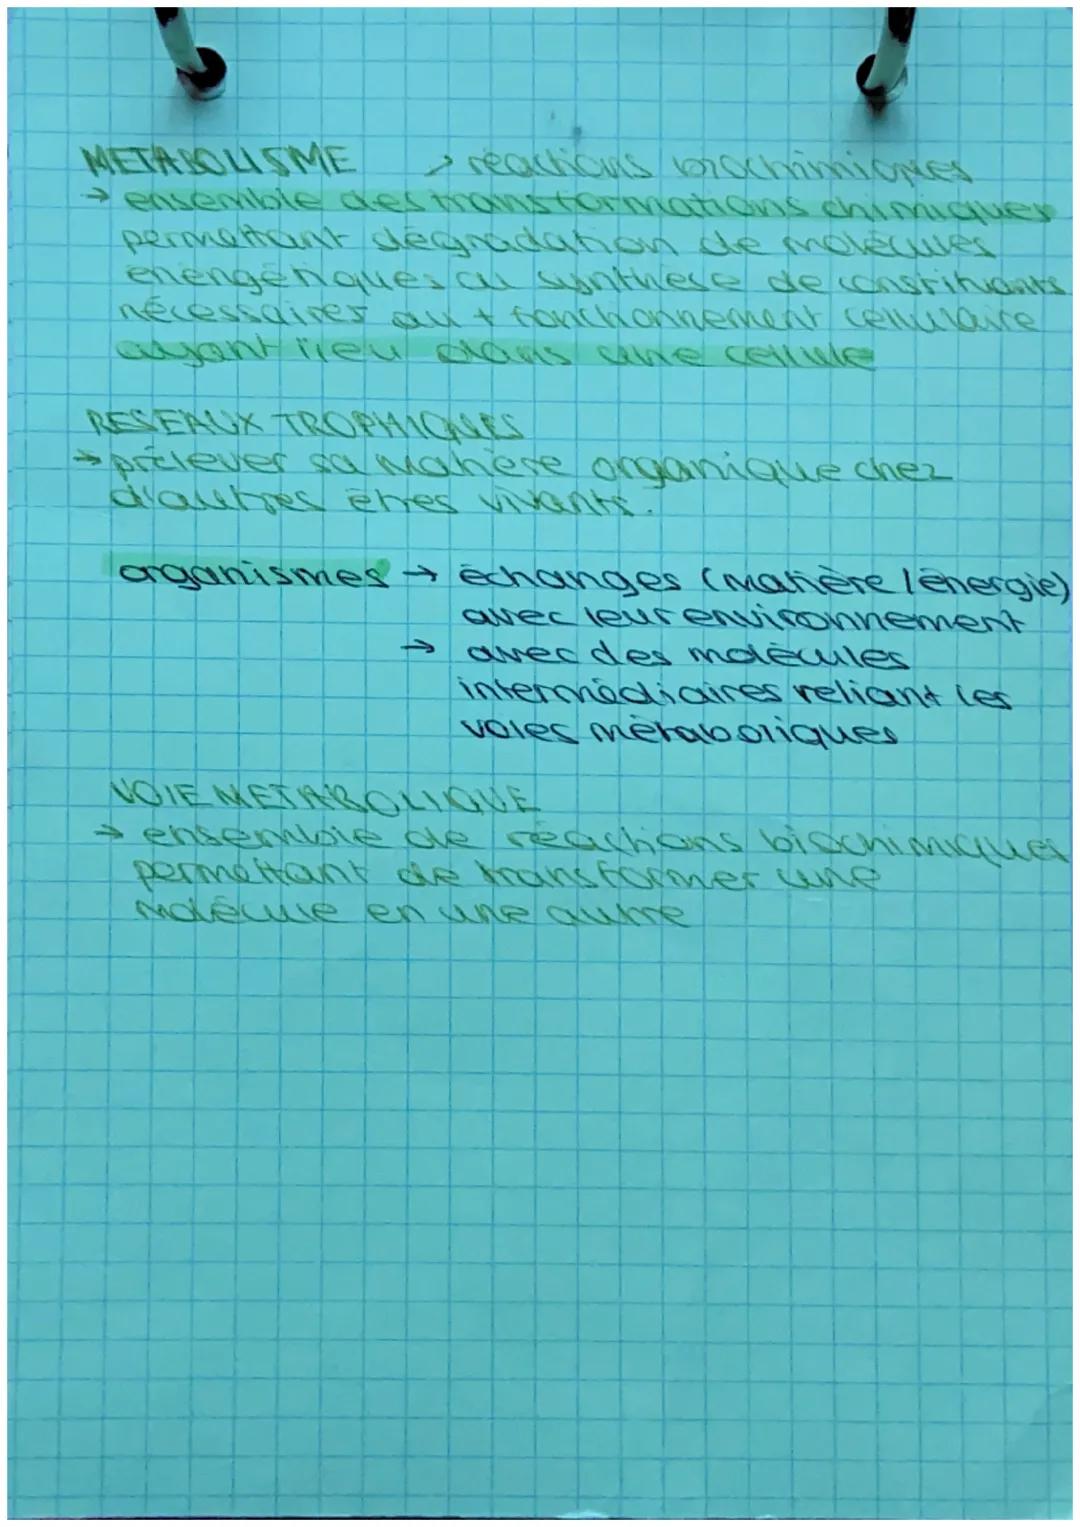 METABOLISME → réactions biochimiques
→ ensemble des transformations chimiques
permettant dégradation de molécules
énergétiques ou synthèse de constituants
nécessaires au + fonctionnement cellulaire
ayant lieu dans une cellule
RESEAUX TROPHIQUES
→ prélever sa matière organique chez
d'autres êtres vivants.
organismes → échanges (matière / énergie)
avec leur environnement
→ avec des molécules
intermédiaires reliant les
voies métaboliques
VOIE METABOLIQUE
→ ensemble de réactions biochimiques
permettant de transformer une
molécule en une autre